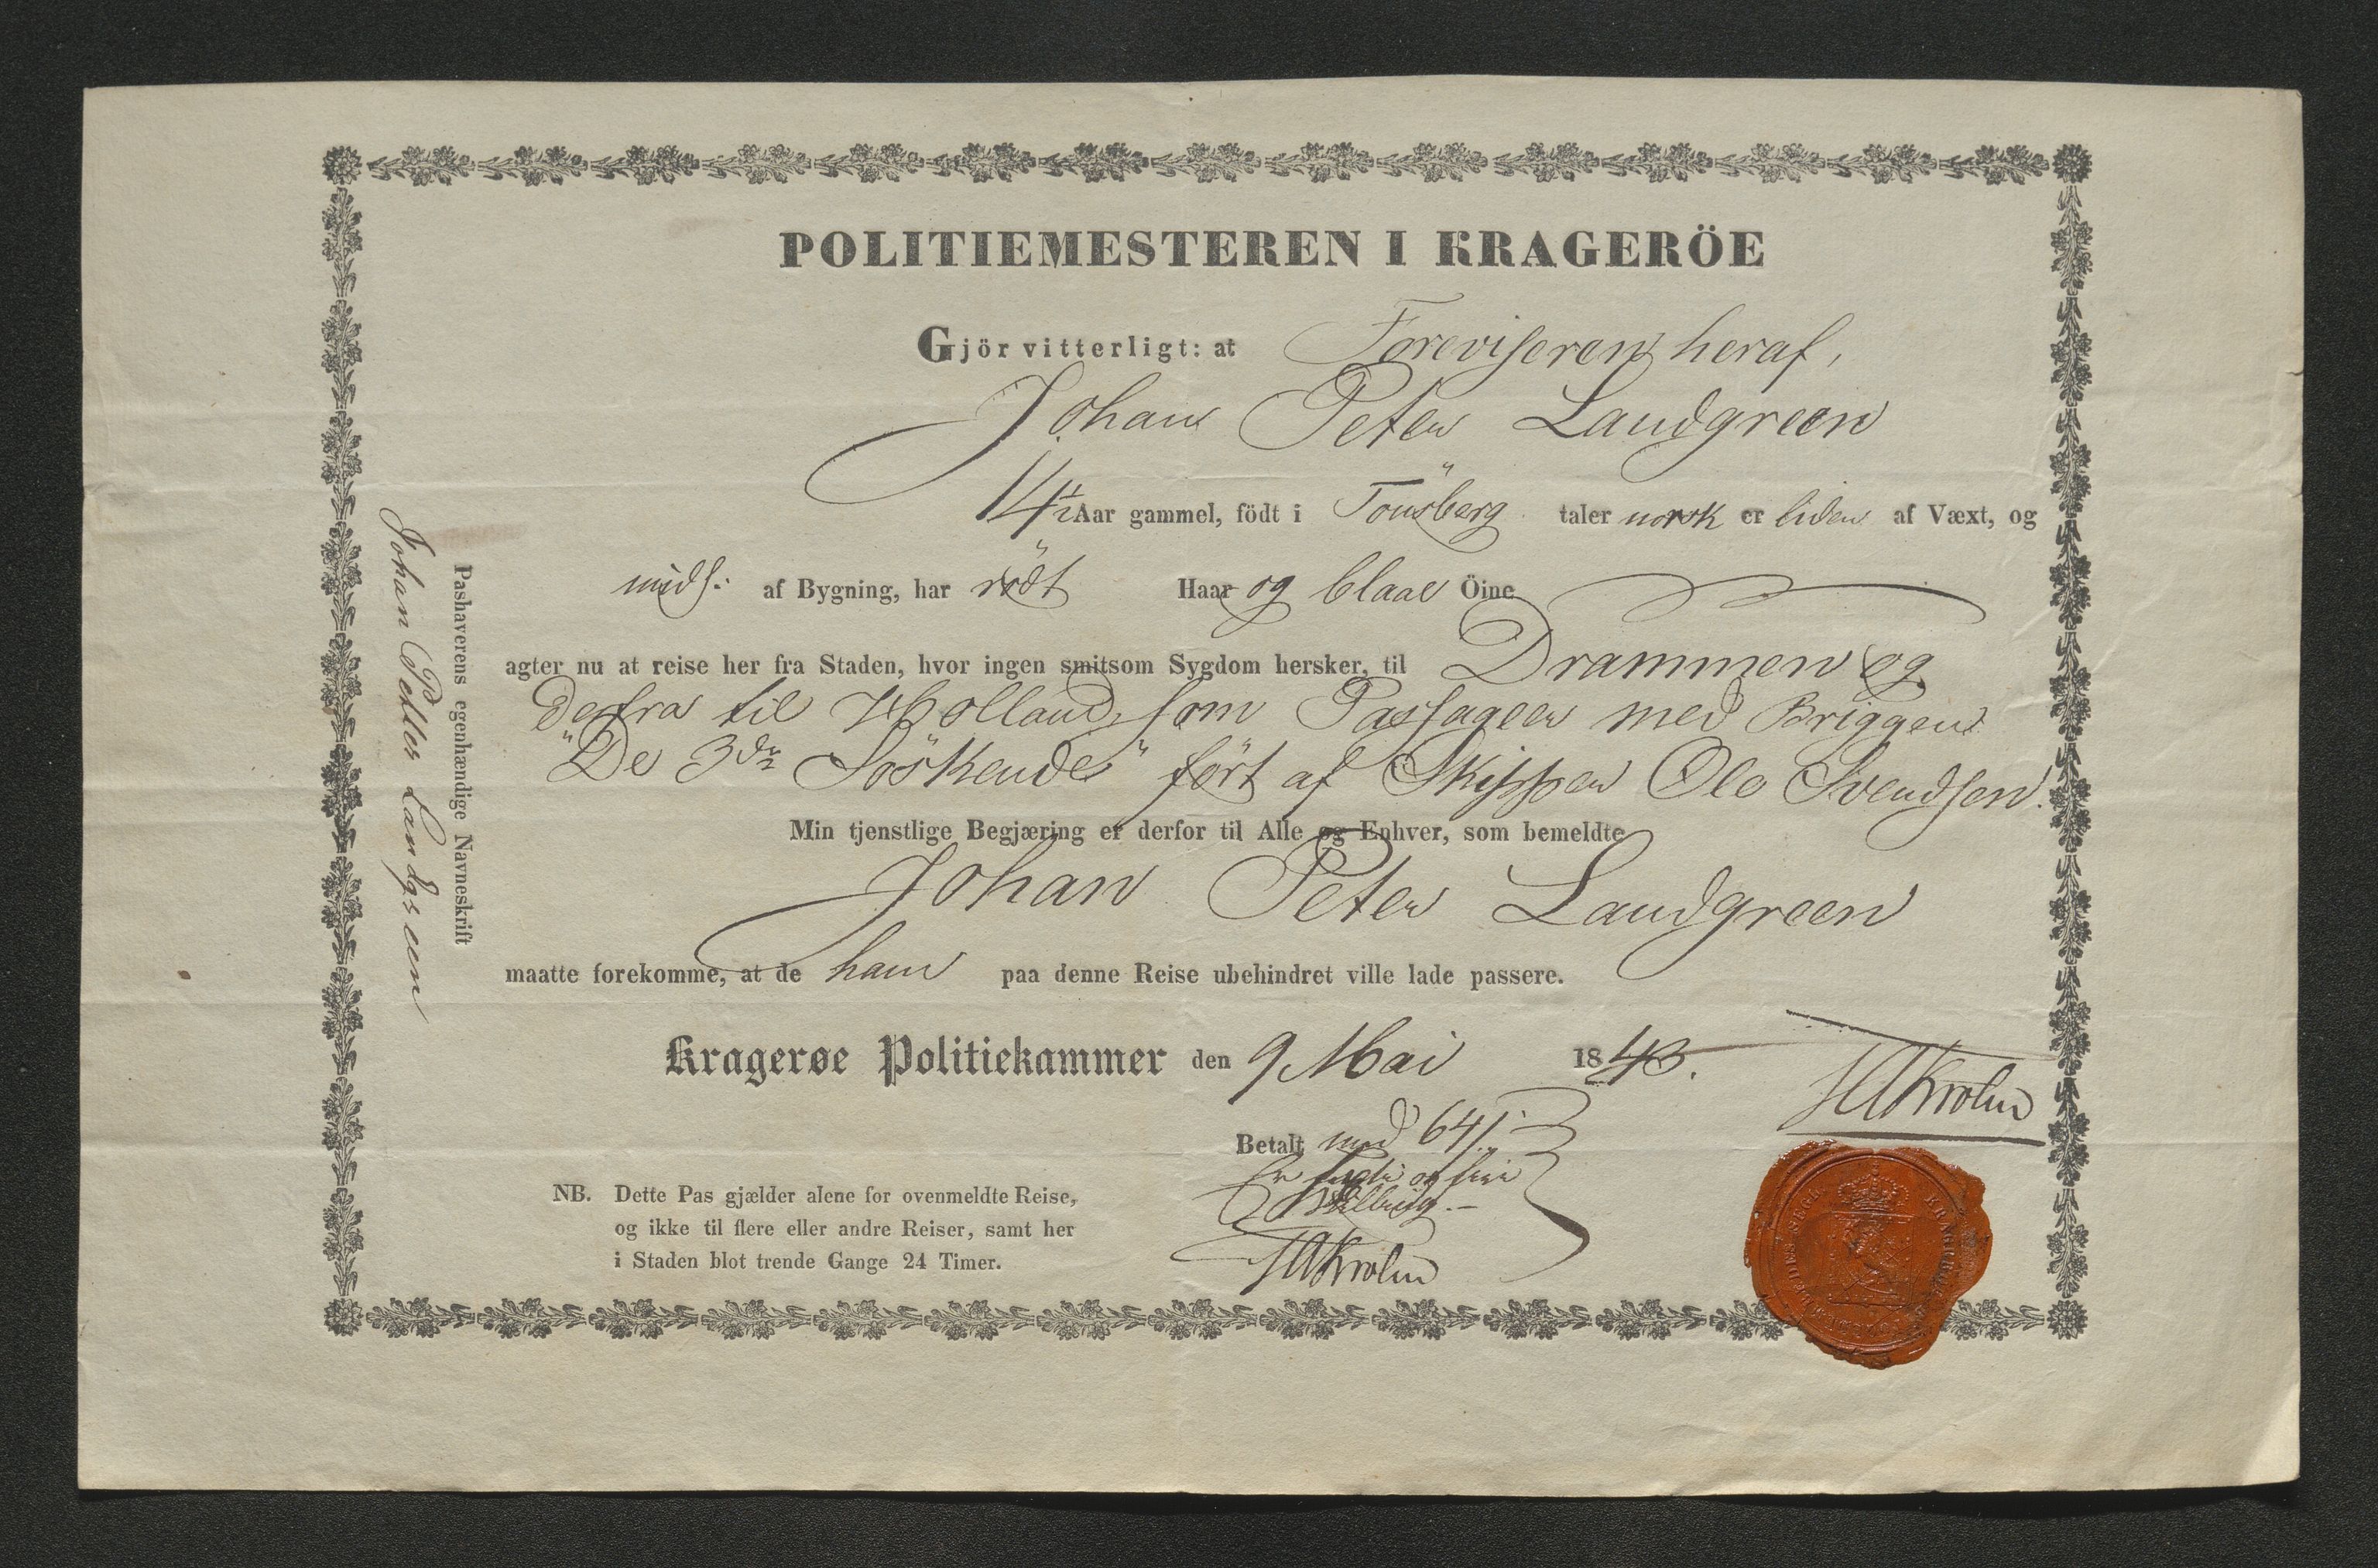 POLITIEMESTEREN I KRAGERÖE
Gjör vitterligt: at Foreviseren heraf,
Johan Peter Landgreen
14½ Aar gammel, födt i Tönsberg taler norsk er liden af Væxt, og
mids: af Bygning, har rödt Haar og blaae Öine
agter nu at reise her fra Staden, hvor ingen smitsom Sygdom hersker, til Drammen og
derfra til Holland, som Passageer med Briggen
"De 3de Söskende" fört af Skipper Ole Svendsen.
Min tjenstlige Begjæring er derfor til Alle og Enhver, som bemeldte
Johan Peter Landgreen
maatte forekomme, at de ham paa denne Reise ubehindret ville lade passere.
Kragerøe Politiekammer den 9 Mai 1843.
Betalt med 64
NB. Dette Pas gjælder alene for ovenmeldte Reise,
og ikke til flere eller andre Reiser, samt her
i Staden blot trende Gange 24 Timer.
Pashaverens egenhændige Navneskrift
Johan Petter Landgreen